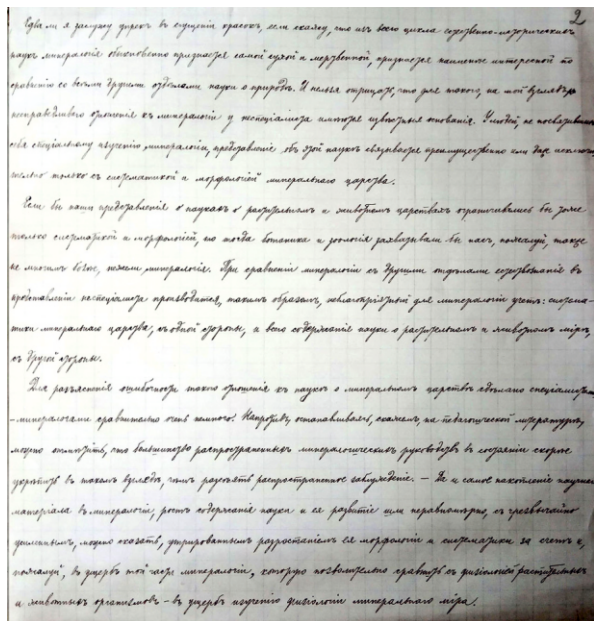 2
Едва ли я заслужу упрек въ сгущеніи красокъ, если скажу, что изъ всего цикла естественно-историческихъ
наукъ минералогія обыкновенно признается самой сухой и мертвенной, признается наименѣе интересной по
сравненію со всѣми другими отдѣлами науки о природѣ. И нельзя отрицать, что для такого, на мой взглядъ,
несправедливаго отношенія къ минералогіи у неспеціалиста имѣются извѣстныя основанія. У людей, не посвятившихъ
себя спеціальному изученію минералогіи, представленіе объ этой наукѣ связывается преимущественно или даже исключи-
тельно только съ систематикой и морфологіей минеральнаго царства.
Если бы наши представленія о наукахъ о растительномъ и животномъ царствахъ ограничивались бы тоже
только систематикой и морфологіей, то тогда ботаника и зоологія захватывали бы насъ, пожалуй, также
не многимъ болѣе, нежели минералогія. При сравненіи минералогіи съ другими отдѣлами естествознанія въ
представленіи неспеціалиста производится, такимъ образомъ, неблагопріятный для минералогіи учетъ: система-
тики минеральнаго царства, съ одной стороны, и всего содержанія науки о растительномъ и животномъ мірѣ,
съ другой стороны.
Для разъясненія ошибочности такого отношенія къ наукѣ о минеральномъ царствѣ сдѣлано спеціалистами
-минералогами сравнительно очень немного. Напротивъ, останавливаясь, скажемъ, на педагогической литературѣ,
можно отмѣтить, что большинство распространенныхъ минералогическихъ руководствъ въ состояніи скорѣе
укрѣпить въ такомъ взглядѣ, чѣмъ разсѣять распространенное заблужденіе. — Да и самое накопленіе научнаго
матеріала въ минералогіи, ростъ содержанія науки и ея развитіе шли неравномѣрно, съ чрезвычайно
усиленнымъ, можно сказать, утрированнымъ разростаніемъ ея морфологіи и систематики за счетъ и,
пожалуй, въ ущербъ той части минералогіи, которую позволительно сравнить съ физіологіей растительныхъ
и животныхъ организмовъ – въ ущербъ изученію физіологіи минеральнаго міра.